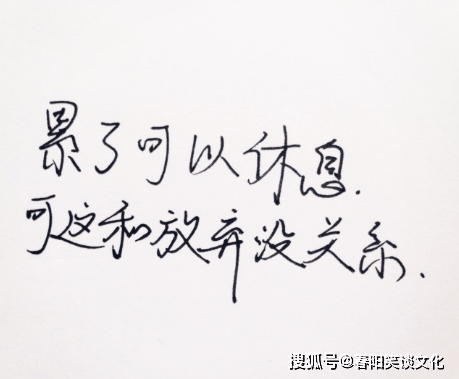 累了可以休息.
可这和放弃没关系.
搜狐号@春阳笑谈文化